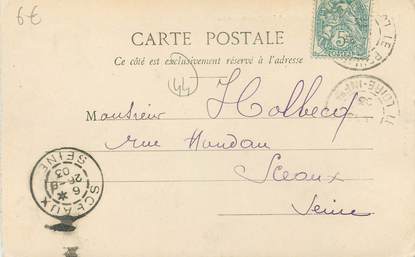 6€
CARTE POSTALE
Ce côté est exclusivement réservé à l'adresse
44
Monsieur Holbecq
rue Houdan
Sceaux
Seine
5
LOIRE-INF
SCEAUX
SEINE
6
26-8
03